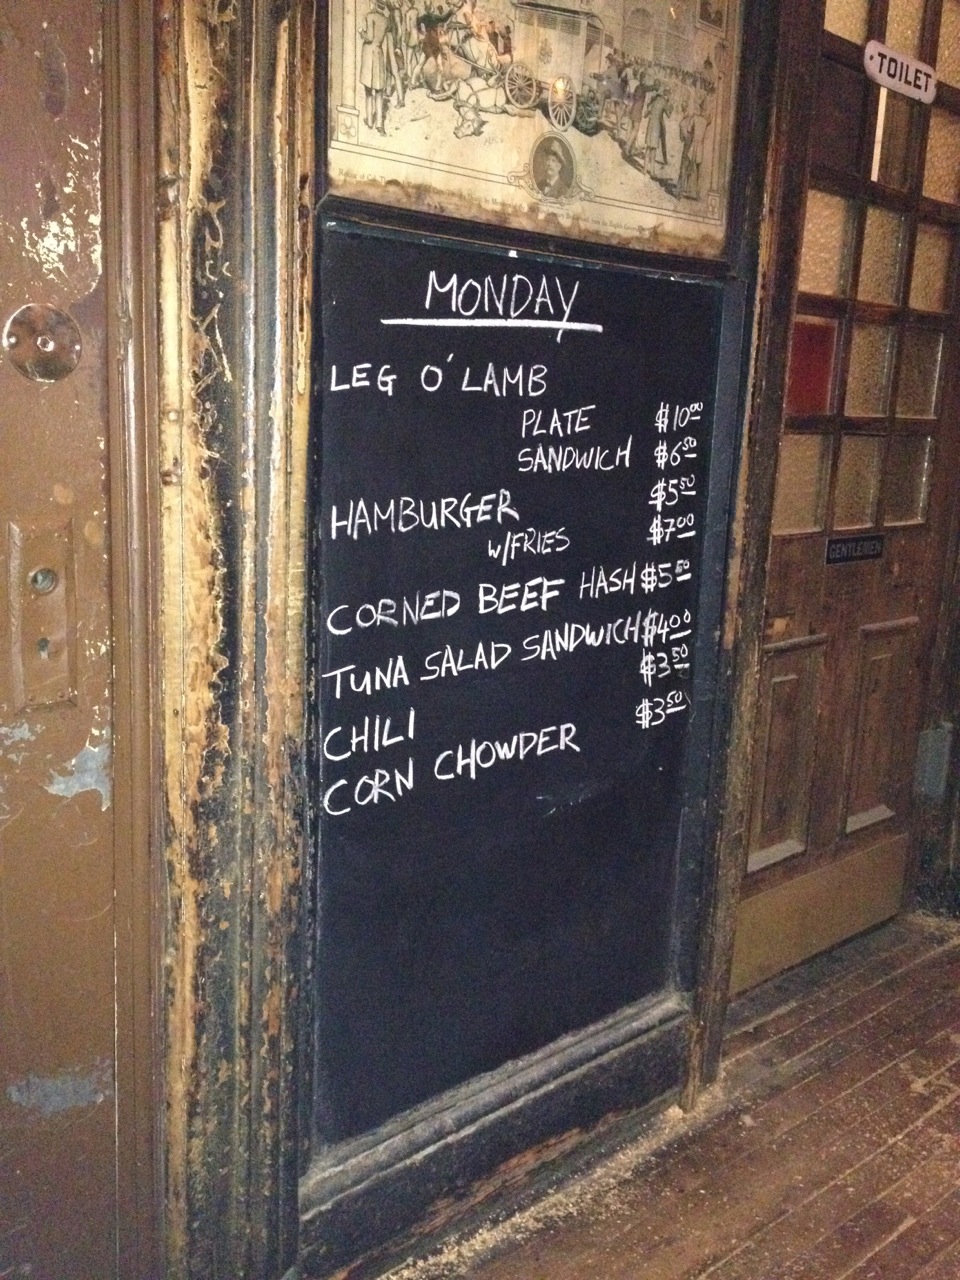 TOILET
MONDAY
LEG O' LAMB
PLATE $10.00
SANDWICH $6.50
HAMBURGER $5.50
W/FRIES $7.00
CORNED BEEF HASH $5.50
TUNA SALAD SANDWICH $4.00
CHILI $3.50
CORN CHOWDER $3.50
GENTLEMEN